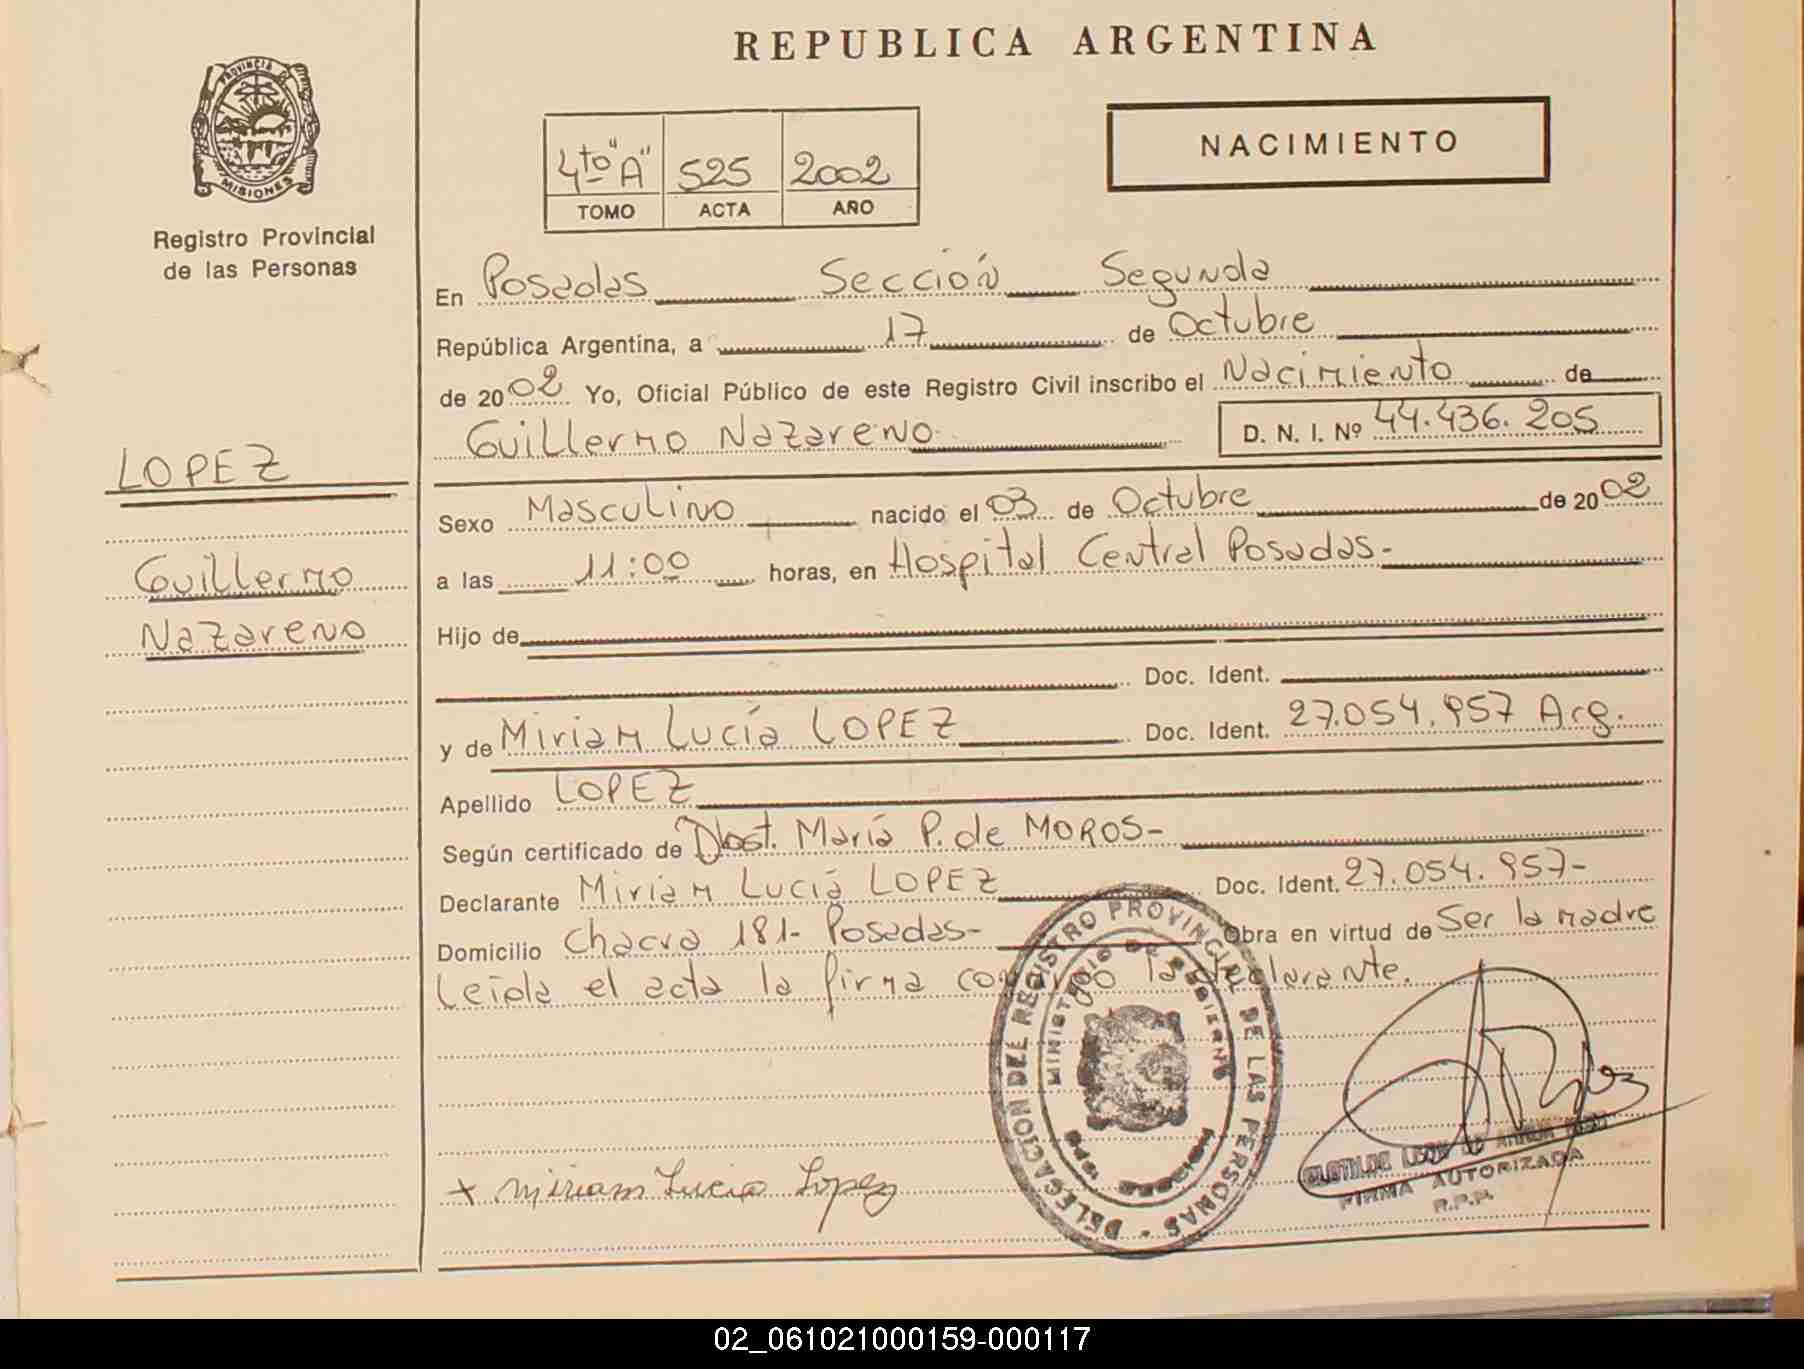 REPUBLICA ARGENTINA
PROVINCIA DE
MISIONES
Registro Provincial
de las Personas
NACIMIENTO
4to "A" 525 2002
TOMO ACTA AÑO
En Posadas Sección Segunda
República Argentina, a 17 de Octubre
de 2002 Yo, Oficial Público de este Registro Civil inscribo el Nacimiento de
Guillermo Nazareno D. N. I. Nº 44.436.205
LOPEZ
Guillermo
Nazareno
Sexo Masculino nacido el 03 de Octubre de 2002
a las 11:00 horas, en Hospital Central Posadas-
Hijo de
Doc. Ident.
y de Miriam Lucía LOPEZ Doc. Ident. 27.054.957 Arg.
Apellido LOPEZ
Según certificado de Obst. María P. de MOROS-
Declarante Miriam Lucía LOPEZ Doc. Ident. 27.054.957-
Domicilio Chacra 181- Posadas- Obra en virtud de Ser la madre
Leída el acta la firma conmigo la declarante.
DELEGACION DEL REGISTRO PROVINCIAL DE LAS PERSONAS
MINISTERIO DE GOBIERNO
+ Miriam Lucia Lopez
FIRMA AUTORIZADA
R.P.P.
02_061021000159-000117